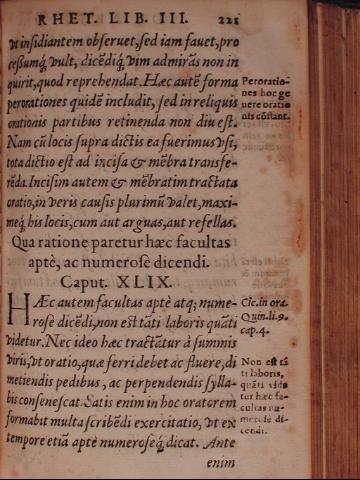 RHET. LIB. III. 221
vt insidiantem obseruet, sed iam fauet, pro
cessumq́, vult, dicēdiq́, vim admirās non in
quirit, quod reprehendat. Hæc autē forma
perorationes quidē includit, sed in reliquis
orationis partibus retinenda non diu est.
Nam cū locis supra dictis ea fuerimus vsi,
tota dictio est ad incisa & mēbra transfe-
rēda. Incisim autem & mēbratim tractata
oratio, in veris causis plurimū valet, maxi-
meq́, his locis, cum aut arguas, aut refellas.
Peroratio-
nes hoc ge
nere oratio
nis cōstant.
Qua ratione paretur hæc facultas
aptè, ac numerosè dicendi.
Caput. XLIX.
HÆc autem facultas aptè atq; nume-
rosè dicēdi, non est tāti laboris quāti
videtur. Nec ideo hæc tractātur à summis
viris, vt oratio, quæ ferri debet ac fluere, di
metiendis pedibus, ac perpendendis sylla-
bis consenescat. Satis enim in hoc oratorem
formabit multa scribēdi exercitatio, vt ex
tempore etiā aptè numeroseq́, dicat. Ante
enim
Cic. in ora.
Quin. li. 9.
cap. 4.
Non est tā
ti laboris,
quāti vide
tur hæc fa-
cultas nu-
merosè di-
cendi.